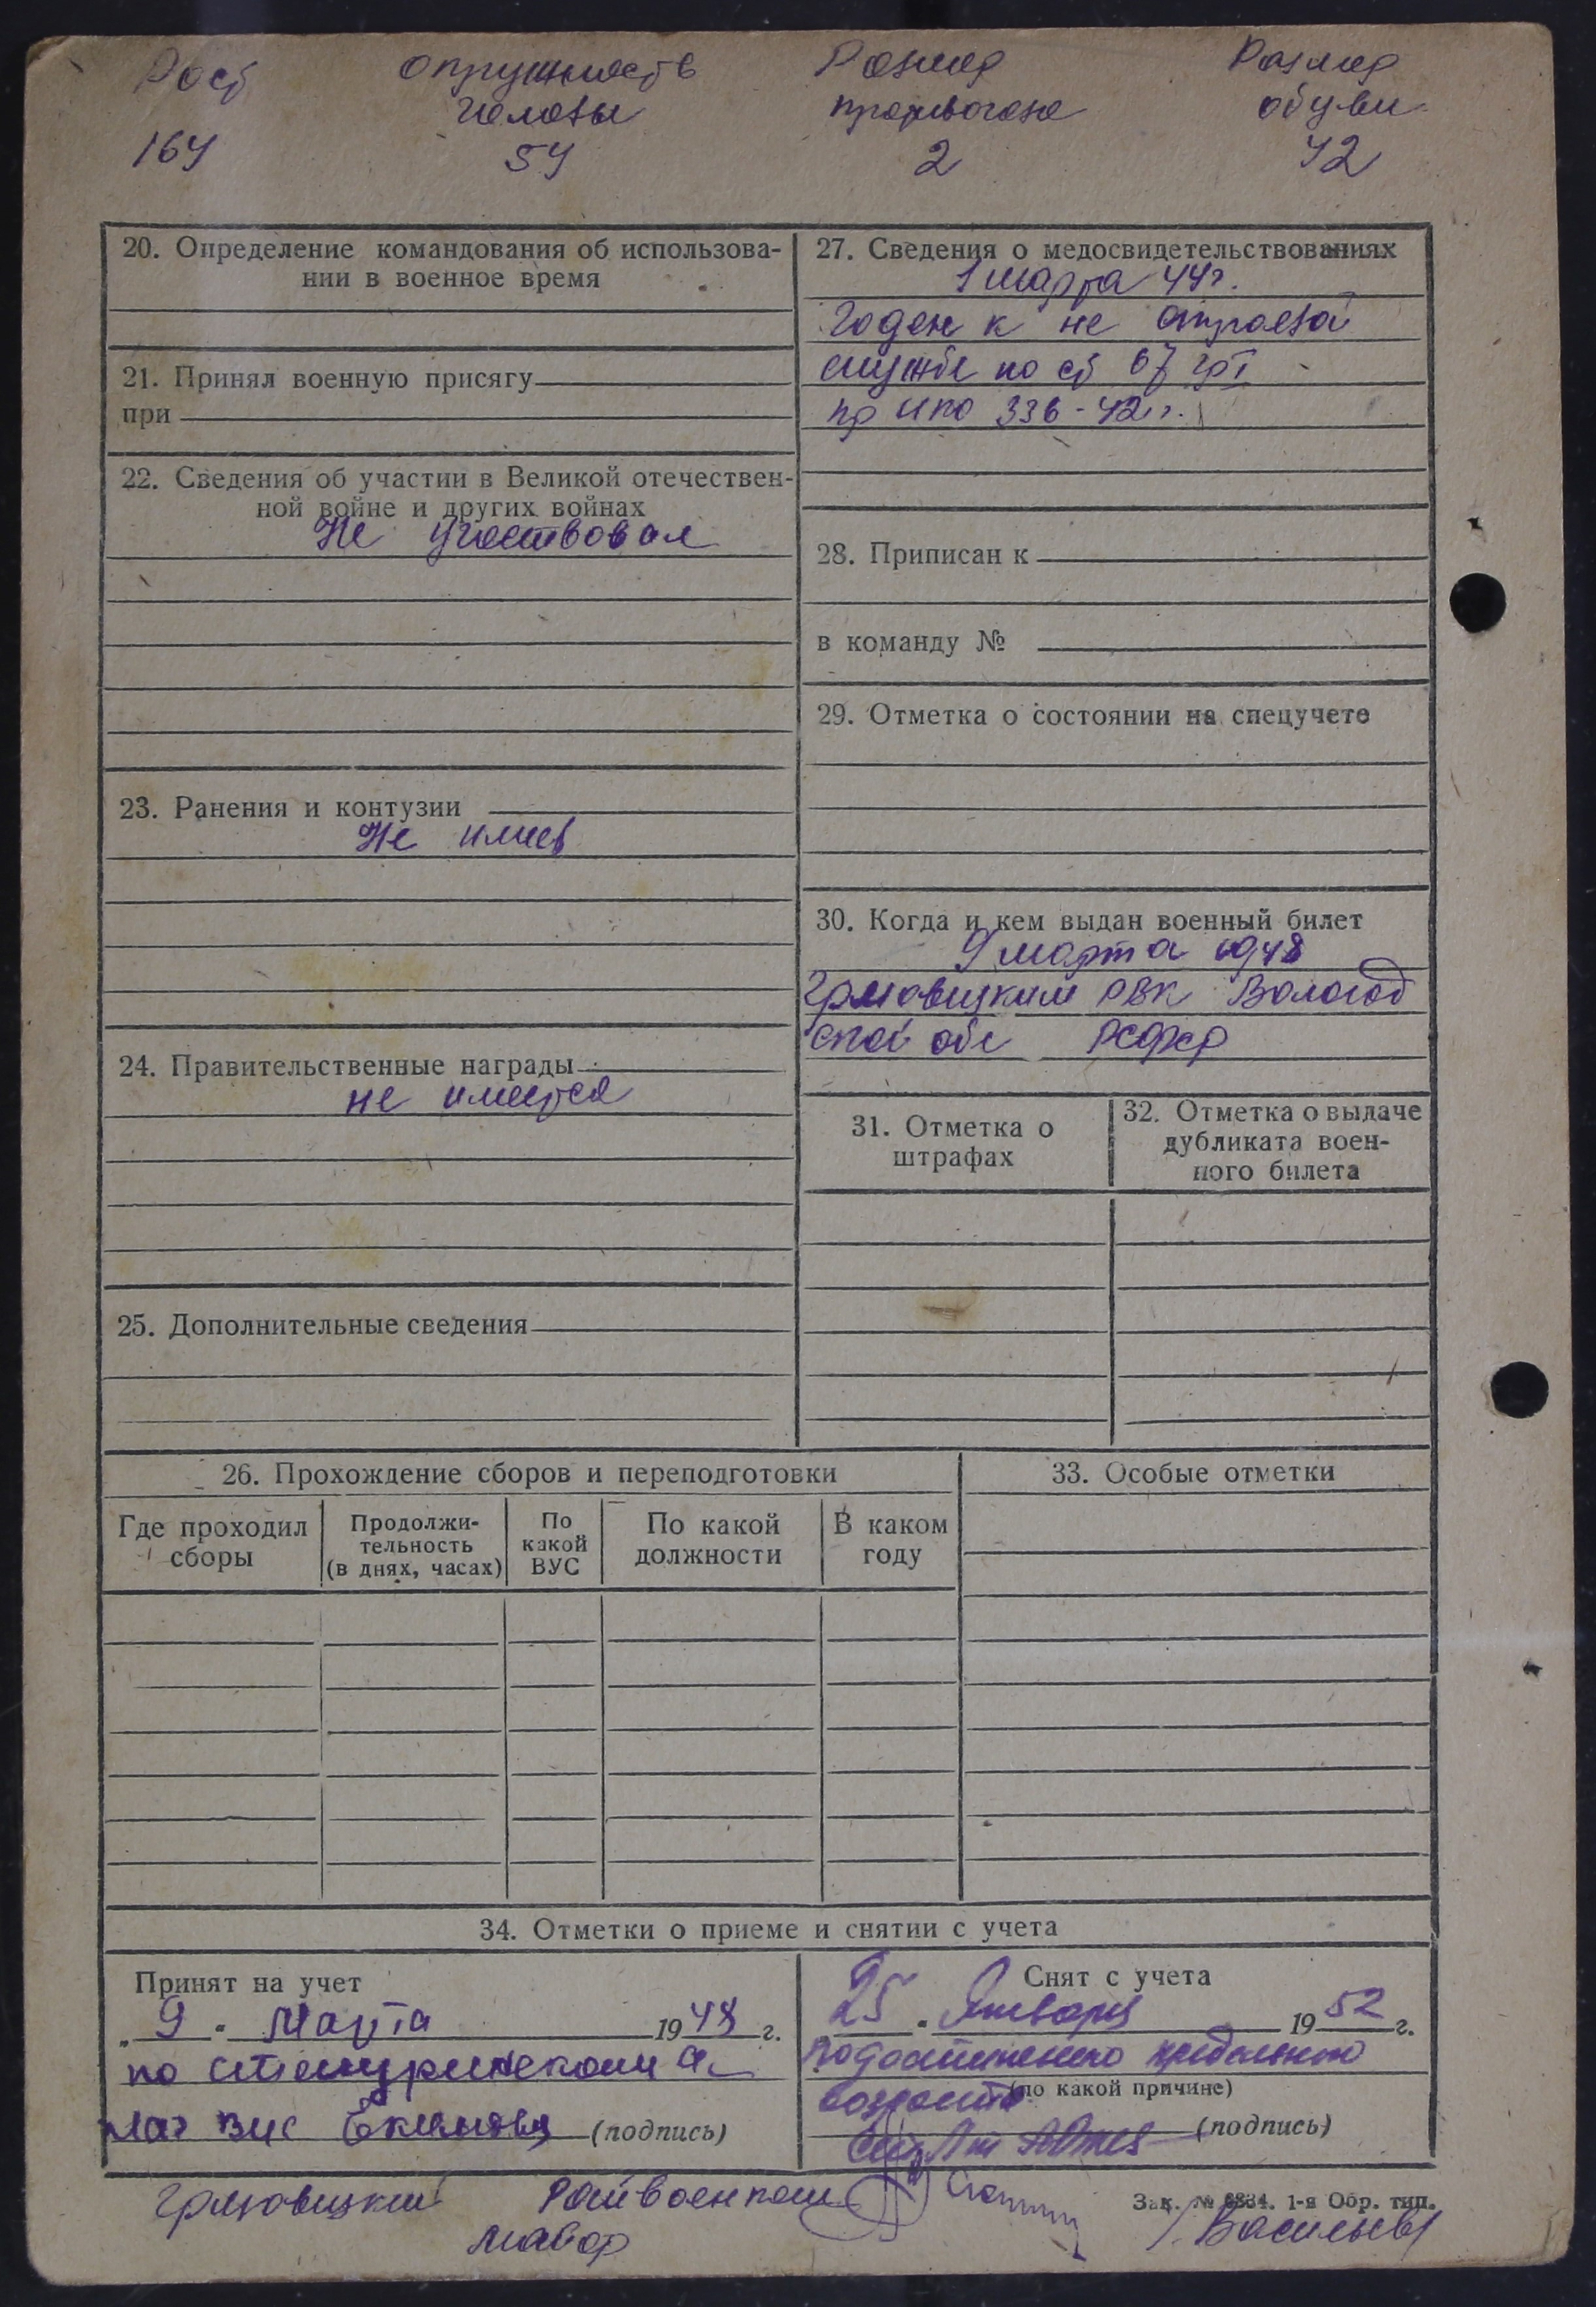 Рост Окружность Размер Размер
головы противогаза обуви
164 54 2 42
20. Определение командования об использова-
нии в военное время
21. Принял военную присягу
при
22. Сведения об участии в Великой отечествен-
ной войне и других войнах
Не участвовал
23. Ранения и контузии
Не имеет
24. Правительственные награды
не имеется
25. Дополнительные сведения
27. Сведения о медосвидетельствованиях
1 марта 44 г.
Годен к не строевой
службе по ст 67 гр I
пр НКО 336-42 г.
28. Приписан к
в команду №
29. Отметка о состоянии на спецучете
30. Когда и кем выдан военный билет
9 марта 1948
Грязовецким РВК Вологод
ской обл РСФСР
31. Отметка о
штрафах
32. Отметка о выдаче
дубликата воен-
ного билета
26. Прохождение сборов и переподготовки
Где проходил
сборы
Продолжи-
тельность
(в днях, часах)
По
какой
ВУС
По какой
должности
В каком
году
33. Особые отметки
34. Отметки о приеме и снятии с учета
Принят на учет
„ 9 " Марта 1948 г.
по
(подпись)
Снят с учета
25 " Января 1952 г.
по достижению предельного
возраста (по какой причине)
(подпись)
Грязовецкий Райвоенком
майор
Зак. № 8834. 1-я Обр. тип.
Васильев